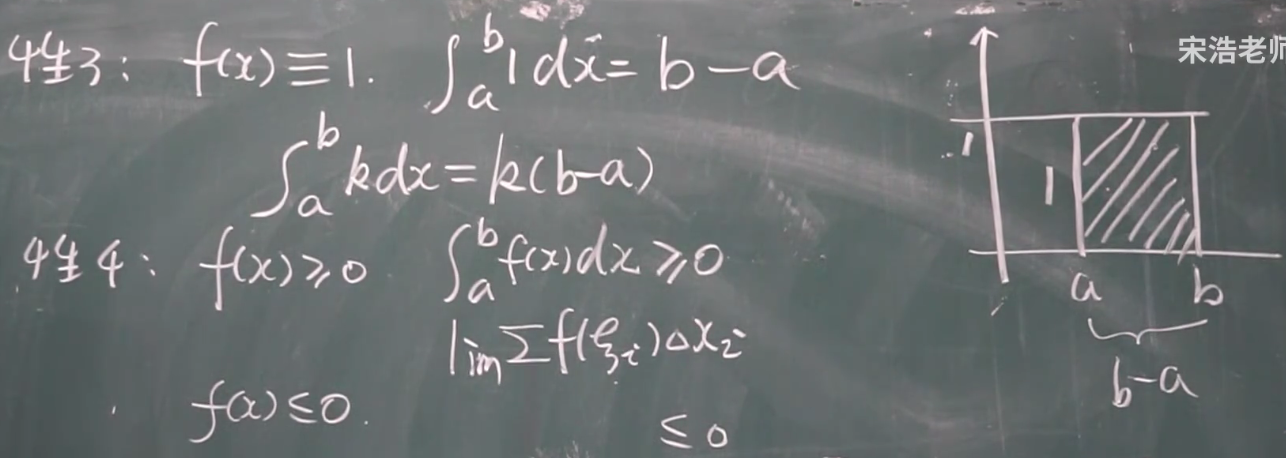 性3: f(x)≡1. ∫_a^b 1dx = b-a
∫_a^b kdx = k(b-a)
性4: f(x)≥0 ∫_a^b f(x)dx≥0
lim Σf(ξ_i)△x_i
f(x)≤0. ≤0
宋浩老师
1
1
a b
b-a